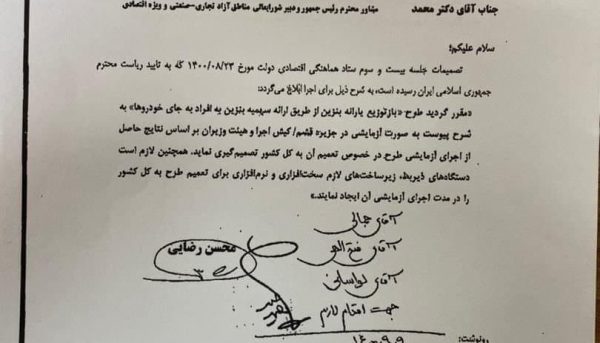 جناب آقای دکتر محمد
مشاور محترم رئیس جمهور و دبیر شورایعالی مناطق آزاد تجاری-صنعتی و ویژه اقتصادی
سلام علیکم؛
تصمیمات جلسه بیست و سوم ستاد هماهنگی اقتصادی دولت مورخ ۱۴۰۰/۰۸/۲۳ که به تایید ریاست محترم
جمهوری اسلامی ایران رسیده است، به شرح ذیل برای اجرا ابلاغ می‌گردد:
«مقرر گردید طرح «بازتوزیع یارانه بنزین از طریق ارائه سهمیه بنزین به افراد به جای خودروها» به
شرح پیوست به صورت آزمایشی در جزیره قشم/کیش اجرا و هیئت وزیران بر اساس نتایج حاصل
از اجرای آزمایشی طرح در خصوص تعمیم آن به کل کشور تصمیم‌گیری نماید. همچنین لازم است
دستگاه‌های ذیربط، زیرساخت‌های لازم سخت‌افزاری و نرم‌افزاری برای تعمیم طرح به کل کشور
را در مدت اجرای آزمایشی آن ایجاد نمایند.»
آقای جمالی
آقای فتح الهی
محسن رضایی
آقای لواسانی
جهت اقدام لازم
رونوشت: